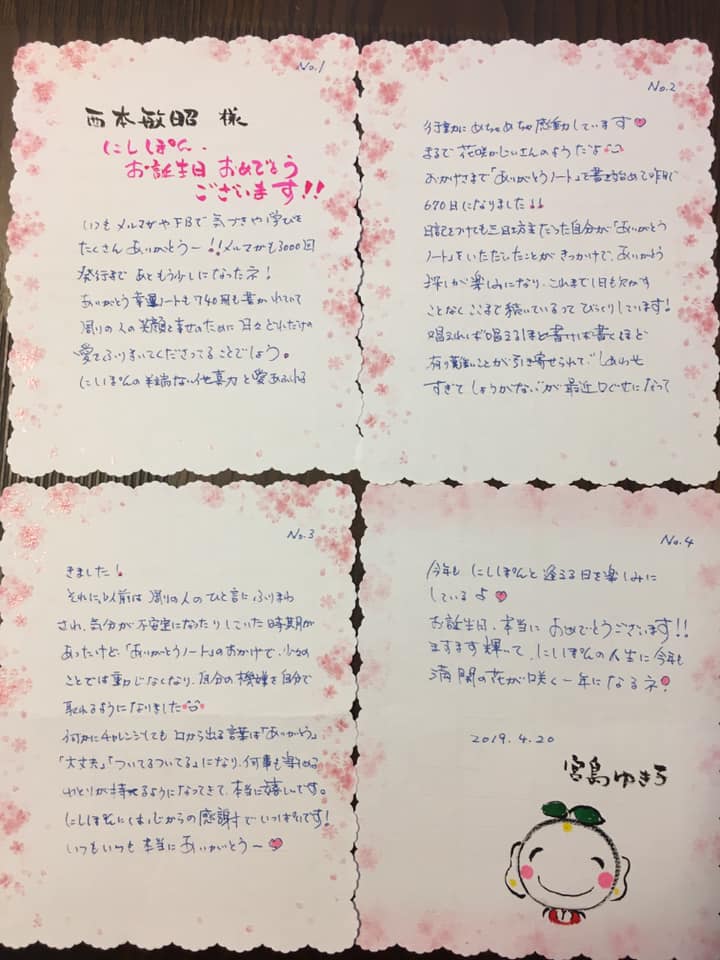 No.1
西本敏昭 様
にしぽん、
お誕生日 おめでとう
ございます!!
いつもメルマガやFBで気づきや学びを
たくさんありがとう〜!!メルマガも3000回
発行まであともう少しになったネ!
ありがとう幸運ノートも740冊も書かれていて
周りの人の笑顔と幸せのために日々どれだけの
愛をふりまいてくださってることでしょう。
にしぽんの半端ない他喜力と愛あふれる
No.2
行動にめちゃめちゃ感動しています
まるで花咲かじいさんのようだよ
おかげさまで「ありがとうノート」を書き始めて昨日で
670日になりました!!
日記をつけても三日坊主だった自分が「ありがとう
ノート」をいただいたことがきっかけで、ありがとう
探しが楽しみになり、これまで1日も欠かす
ことなくここまで続いているってびっくりしています!
唱えれば唱えるほど書けば書くほど
有り難いことが引き寄せられて"しあわせ
すぎてしょうがない"が最近口ぐせになって
No.3
きました!
それに、以前は周りの人のひと言にふりまわ
され、気分が不安定になったりしていた時期が
あったけど、「ありがとうノート」のおかげで、少々の
ことでは動じなくなり、自分の機嫌を自分で
取れるようになりました
何かにチャレンジしても口から出る言葉は「ありがとう」
「大丈夫」「ついてるついてる」になり、何事も楽しめる
ゆとりが持てるようになってきて、本当に嬉しいです。
にしぽんには心からの感謝でいっぱいです!
いつもいつも本当にありがとう〜
No.4
今年もにしぽんと逢える日を楽しみに
しているよ
お誕生日、本当におめでとうございます!!
ますます輝いて、にしぽんの人生に今年も
満開の花が咲く一年になるネ!
2019.4.20
宮島ゆき子